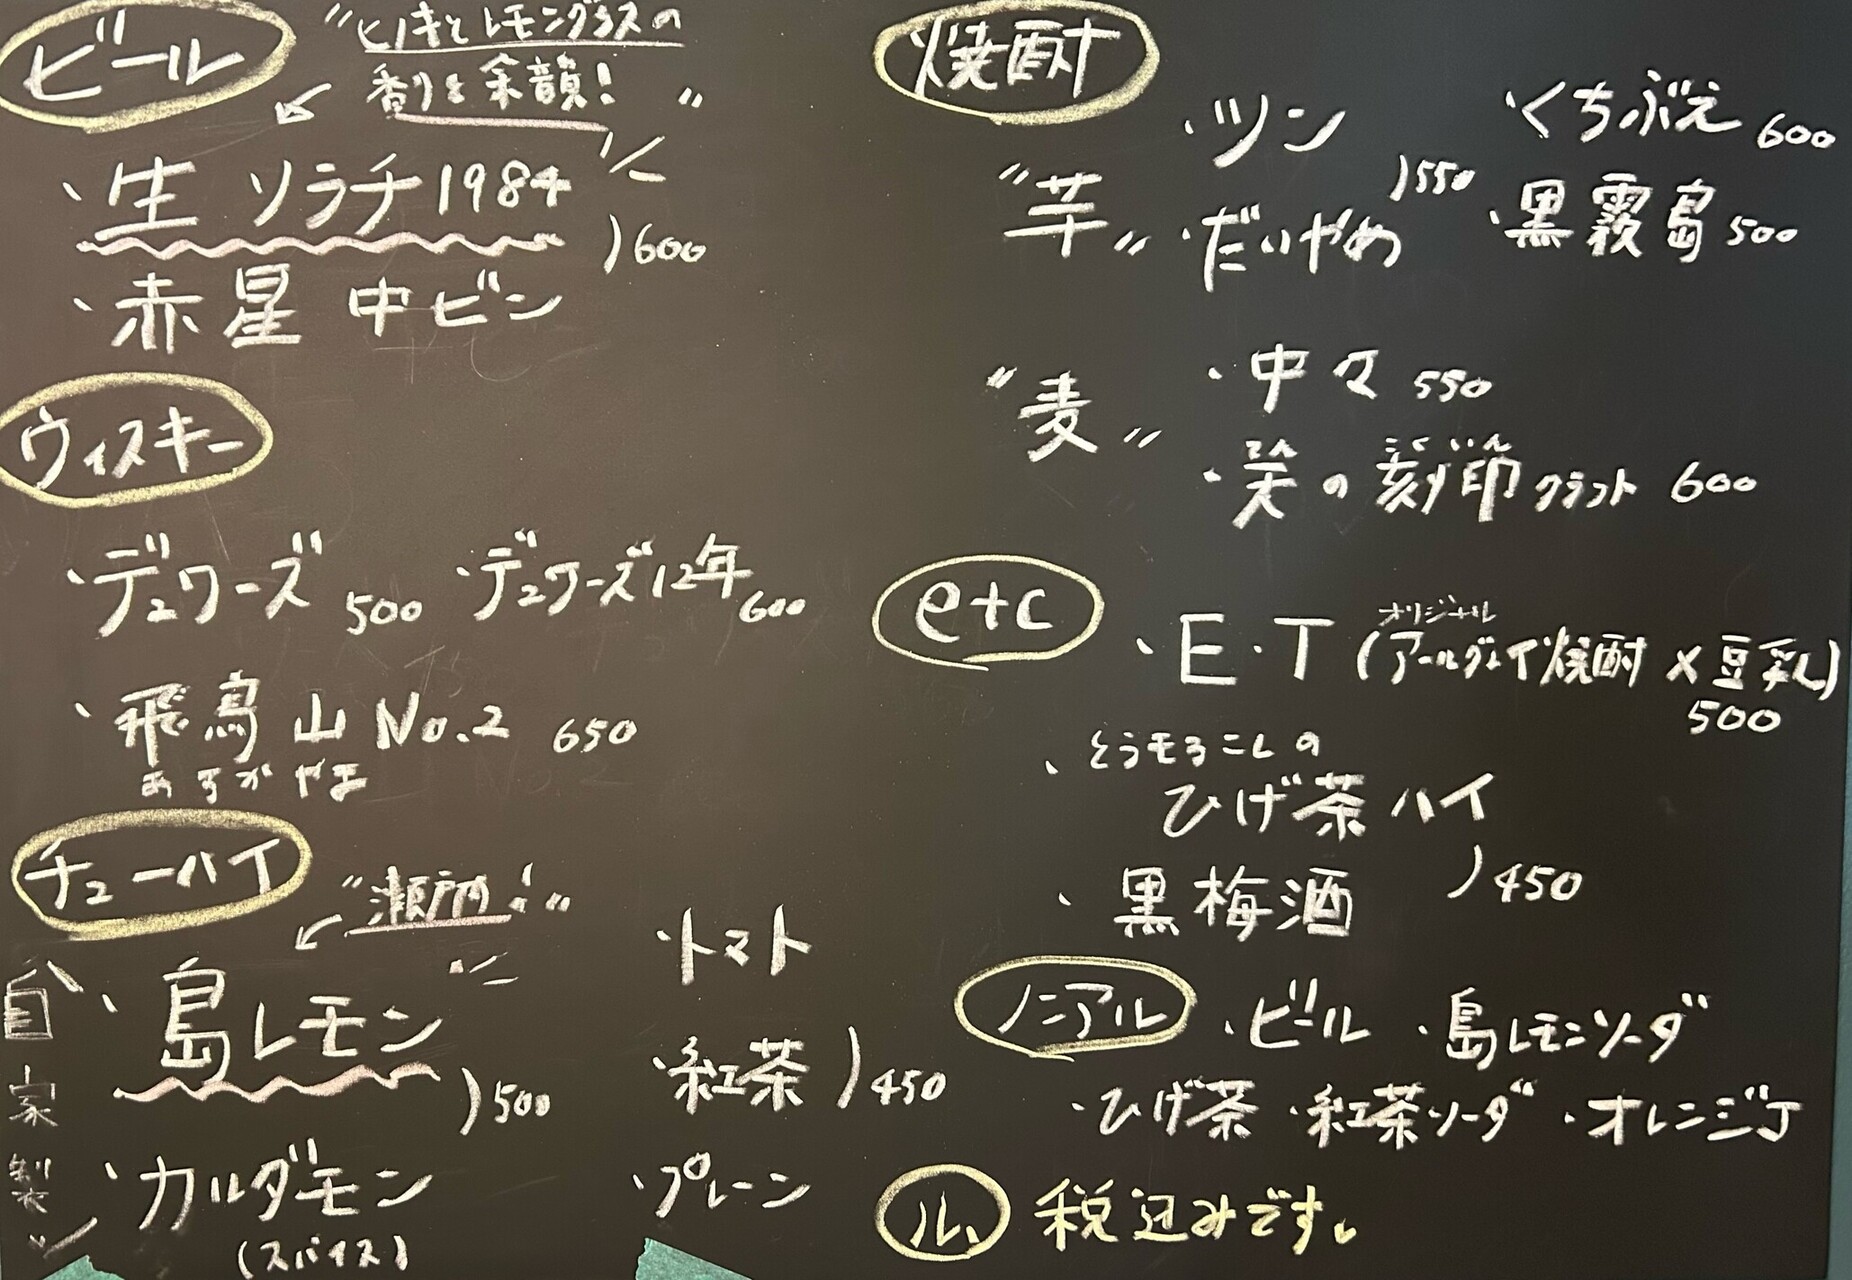 ビール
"ヒノキとレモングラスの
香りを余韻!"
・生 ソラチ1984
・赤星 中ビン
)600
ウィスキー
・デュワーズ 500 ・デュワーズ12年 600
・飛鳥山 No.2 650
あすかやま
チューハイ
"瀬戸内!"
自家製
・島レモン
・カルダモン
(スパイス)
)500
・トマト
・紅茶
・プレーン
)450
焼酎
"芋"
・ツン
・だいやめ
)550
・くちぶえ 600
・黒霧島 500
"麦"
・中々 550
こくいん
・栄の刻印 クラフト 600
etc
オリジナル
・E・T (アールグレイ焼酎×豆乳)
500
・とうモろこしの
ひげ茶ハイ
・黒梅酒
)450
ノンアル ・ビール ・島レモンソーダ
・ひげ茶 ・紅茶ソーダ ・オレンジJ
税込みです。